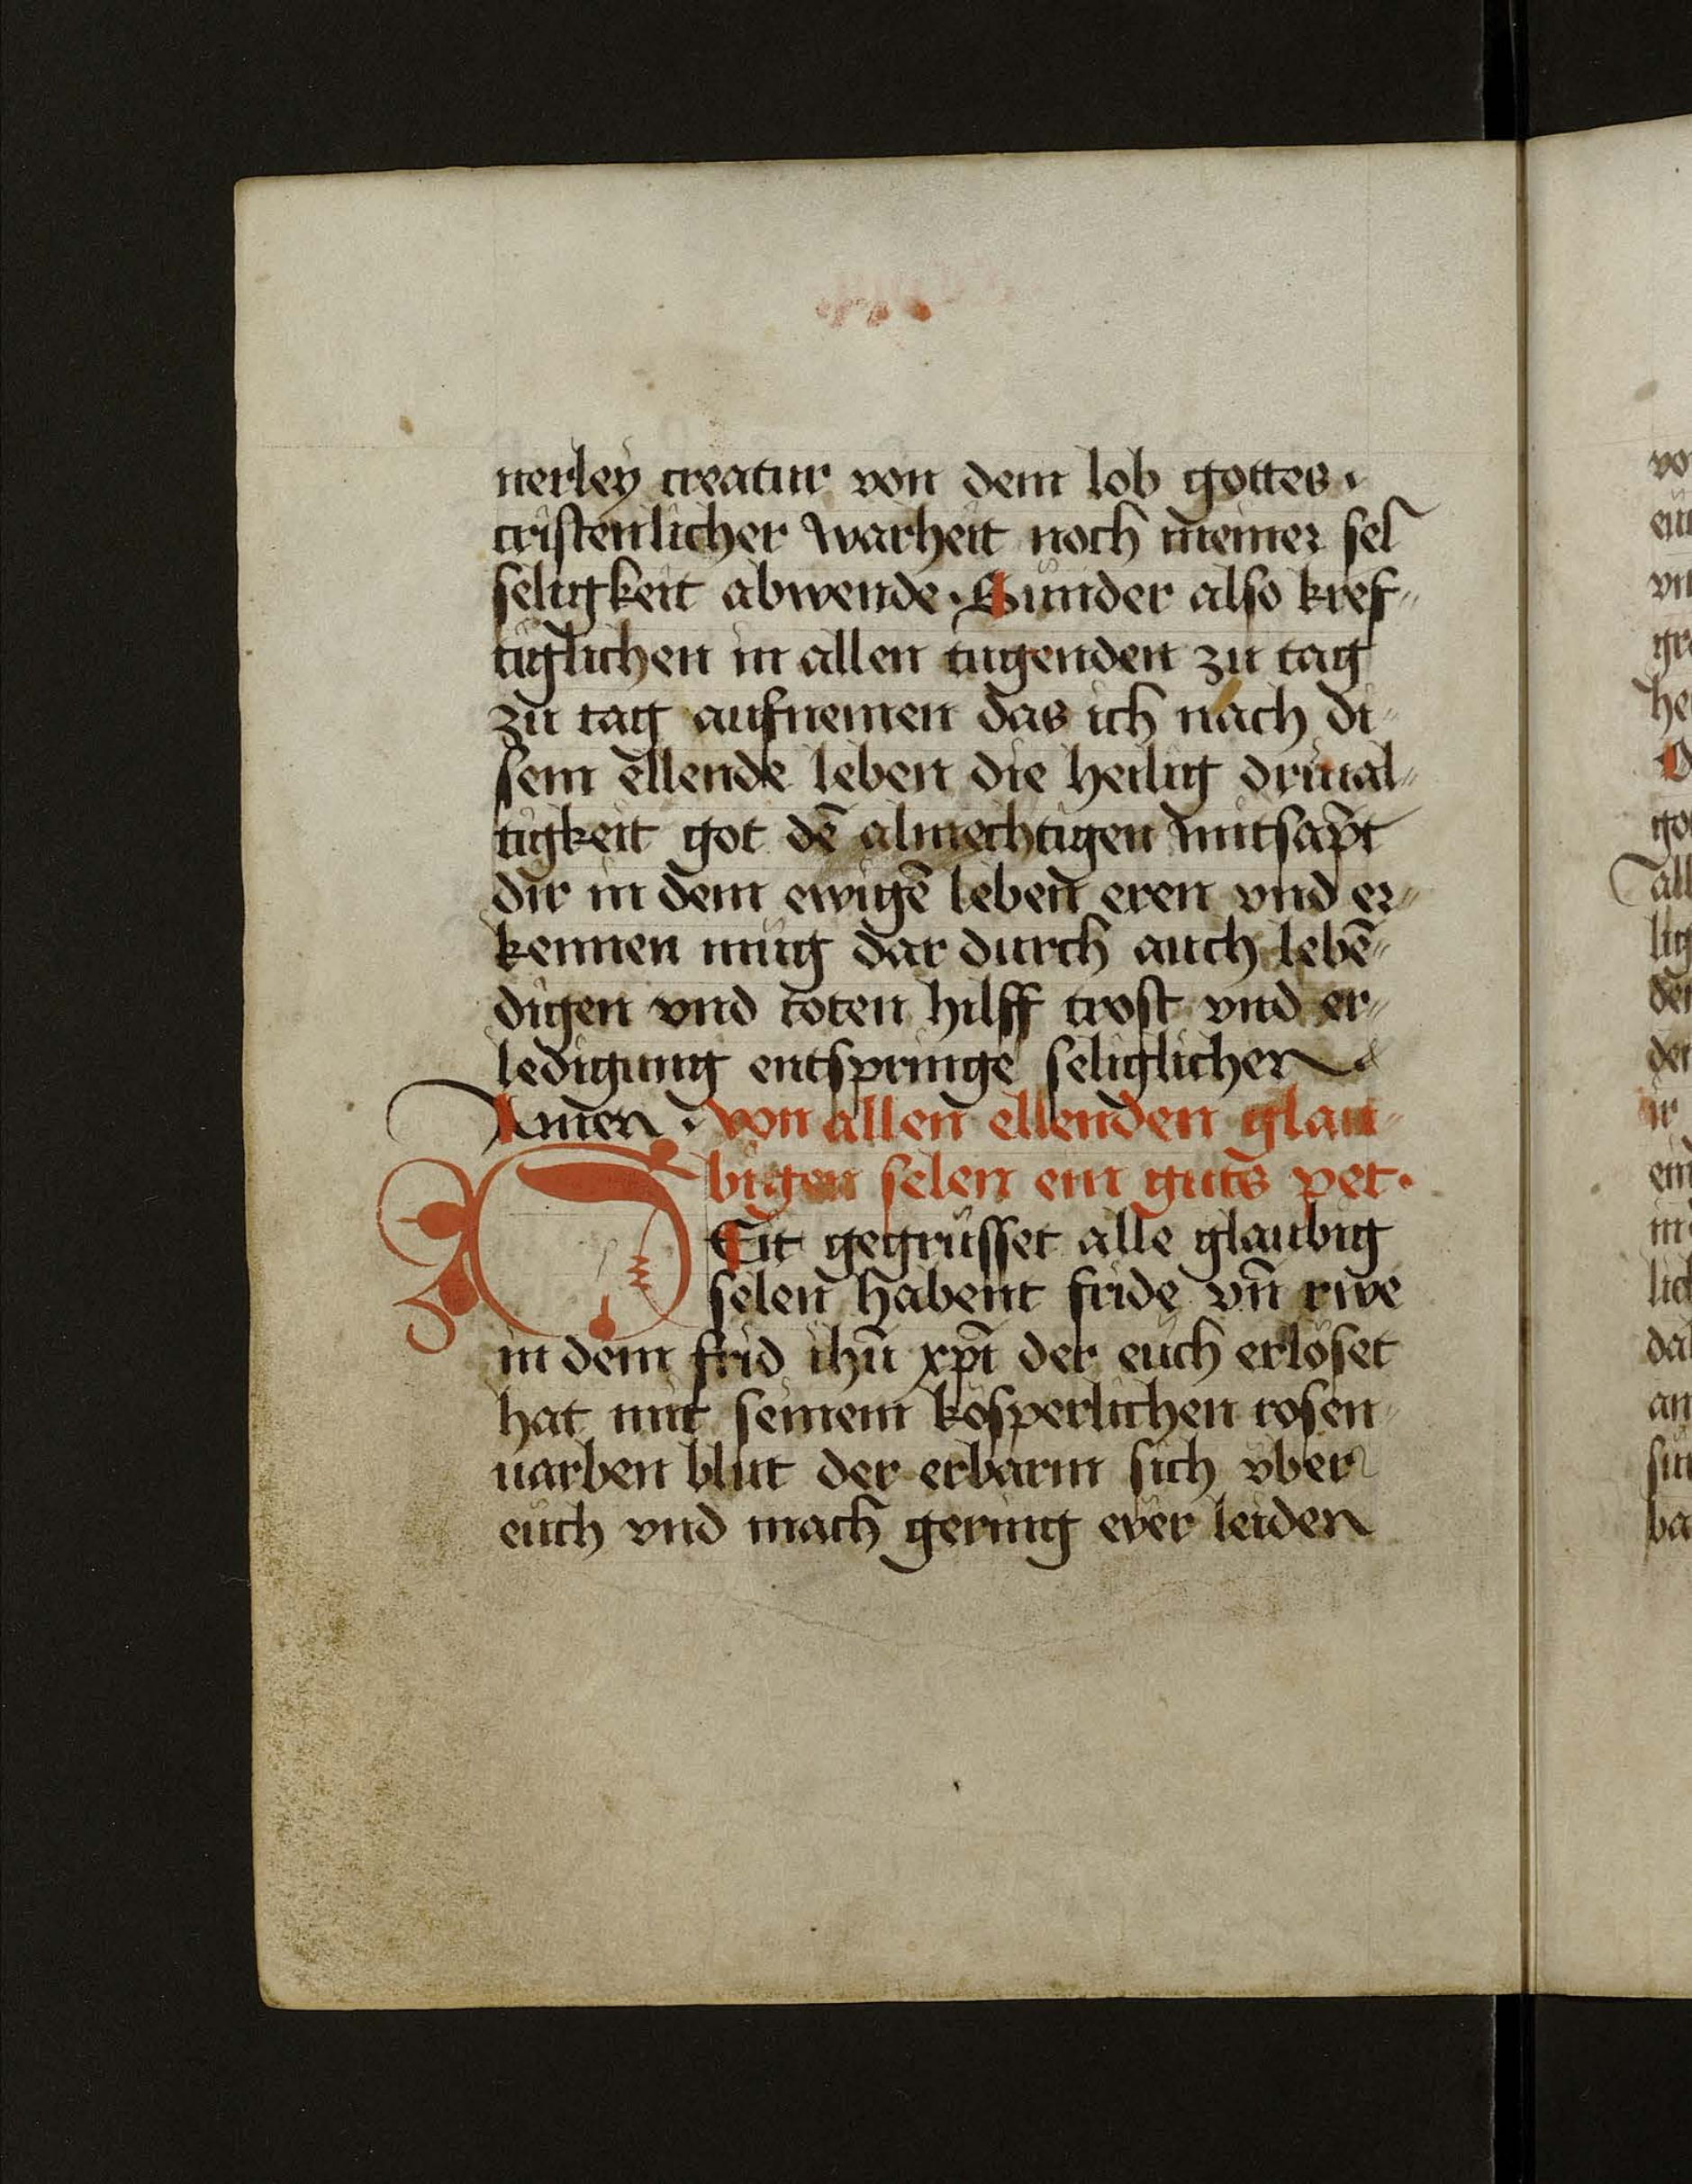 nerley creatur von dem lob gottes ·
cristenlicher warheit noch meiner sel
seligkeit abwende · Sunder also kref-
tiglichen in allen tugenden zu tag
zu tag aufnemen das ich nach di-
sem ellende leben die heilig driual-
tigkeit got dē almechtigen mitsāpt
dir in dem ewigē leben eren vnd er-
kennen müg dar durch auch lebē-
digen vnd toten hilff trost vnd er-
ledigung entspringe seliglichen
Amen · von allen ellenden glau-
bigen selen ein guts pet ·
Eit gegrüsset alle glaubig
selen habent fride vn̄ rwe
in dem frid ihū xp̄i der euch erlöset
hat mit seinem kösperlichen rosen-
uarben blut der erbarm sich vber
euch vnd mach gering ewer leiden